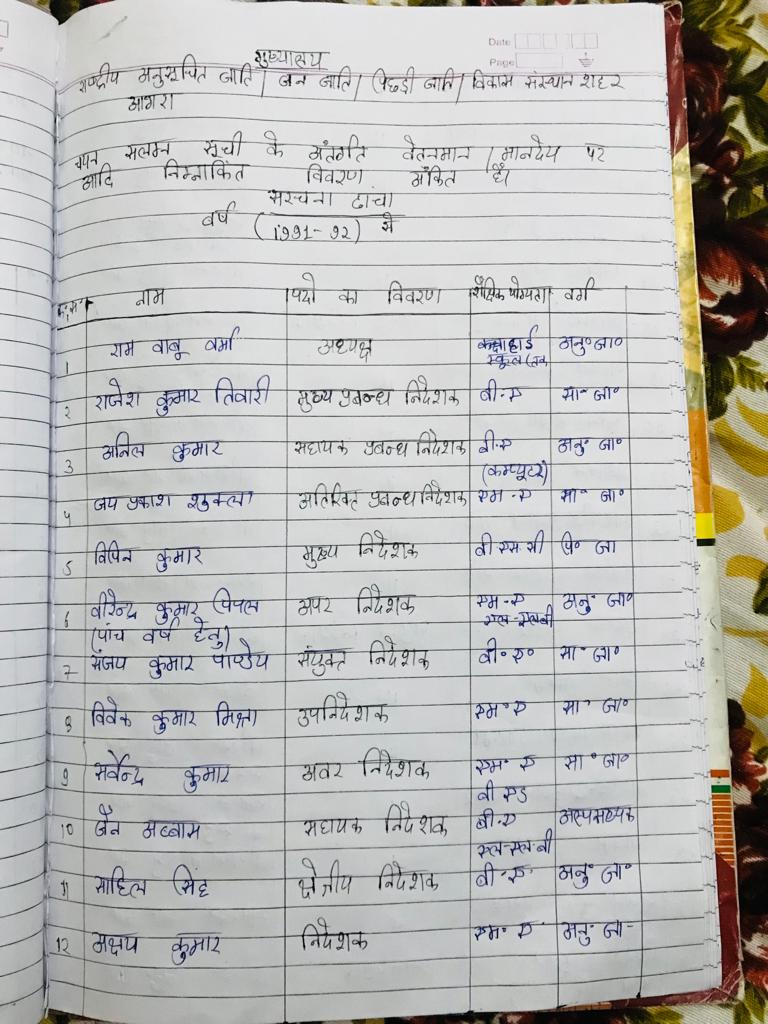 Date
Page
मुख्यालय
राष्ट्रीय अनुसूचित जाति / जन जाति / पिछड़ी जाति / विकास संस्थान शहर
आगरा
चयन सलग्न सूची के अंतर्गत वेतनमान / मानदेय पर
आदि निम्नांकित विवरण अंकित है।
संरचना ढांचा
वर्ष (1991-92) से
क्र०स० नाम पदो का विवरण शैक्षिक योग्यता वर्ग
1 राम बाबू वर्मा अध्यक्ष कक्षा हाई स्कूल तक अनु० जा०
2 राजेश कुमार तिवारी मुख्य प्रबन्ध निदेशक बी-ए सा० जा०
3 अनिल कुमार सहायक प्रबन्ध निदेशक बी-ए (कम्प्यूटर) अनु० जा०
4 जय प्रकाश शुक्ला अतिरिक्त प्रबन्ध निदेशक एम-ए सा० जा०
5 विपिन कुमार मुख्य निदेशक बी एस सी पि० जा
6 वीरेन्द्र कुमार पिपल (पांच वर्ष हेतु) अपर निदेशक एम-ए एल-एलबी अनु० जा०
7 संजय कुमार पाण्डेय संयुक्त निदेशक बी० ए० सा० जा०
8 विवेक कुमार मिश्रा उपनिदेशक एम० ए सा० जा०
9 सर्वेन्द्र कुमार अवर निदेशक एम० ए बी एड सा० जा०
10 जैन अब्बास सहायक निदेशक बी-ए एल-एल-बी अल्पसंख्यक
11 साहिल सिंह क्षेत्रीय निदेशक बी-ए अनु० जा०
12 अक्षय कुमार निदेशक एम० ए अनु० जा-